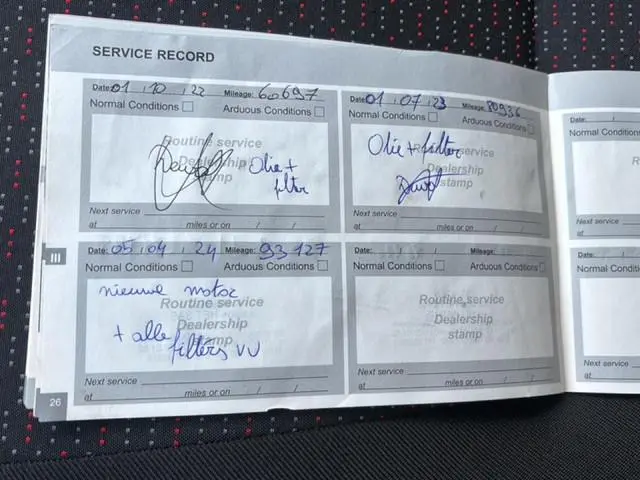 SERVICE RECORD
Date: 01 / 10 / 22 Mileage: 60697
Normal Conditions Arduous Conditions
Routine service
Dealership
stamp
Olie +
filter
Next service
at miles or on / /
Date: 01 / 07 / 23 Mileage: 80936
Normal Conditions Arduous Conditions
Olie + filter
Routine service
Dealership
stamp
Next service
at miles or on / /
Date: /
Normal Conditions
Next service
at
III
Date: 05 / 04 / 24 Mileage: 93 127
Normal Conditions Arduous Conditions
nieuwe motor
Routine service
Dealership
stamp
+ alle
filters VV
Next service
at miles or on / /
Date: / / Mileage:
Normal Conditions Arduous Conditions
Routine service
Dealership
stamp
Next service
at miles or on / /
Date: /
Normal Conditions
Next service
at
26